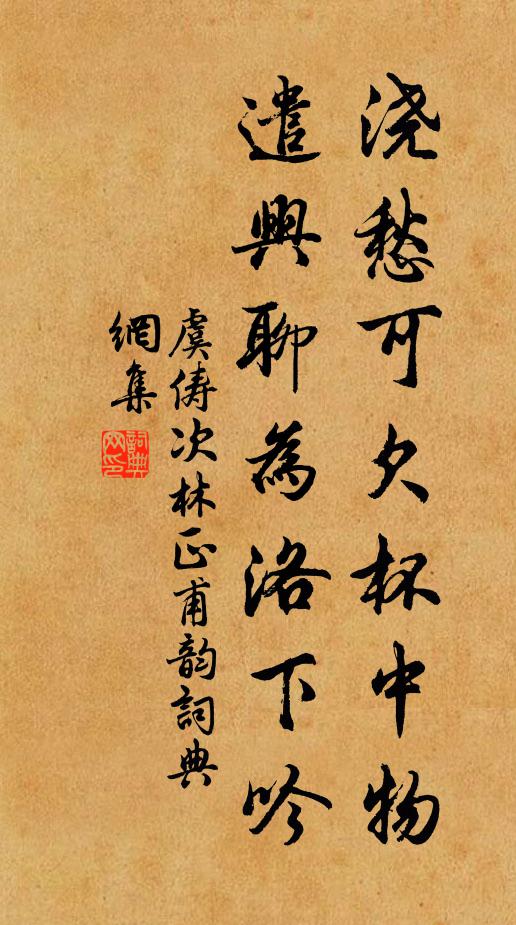 浇愁可欠杯中物
遣興聊為洛下吟
虞俦次林正甫韵詞典
網集
詞典
网印